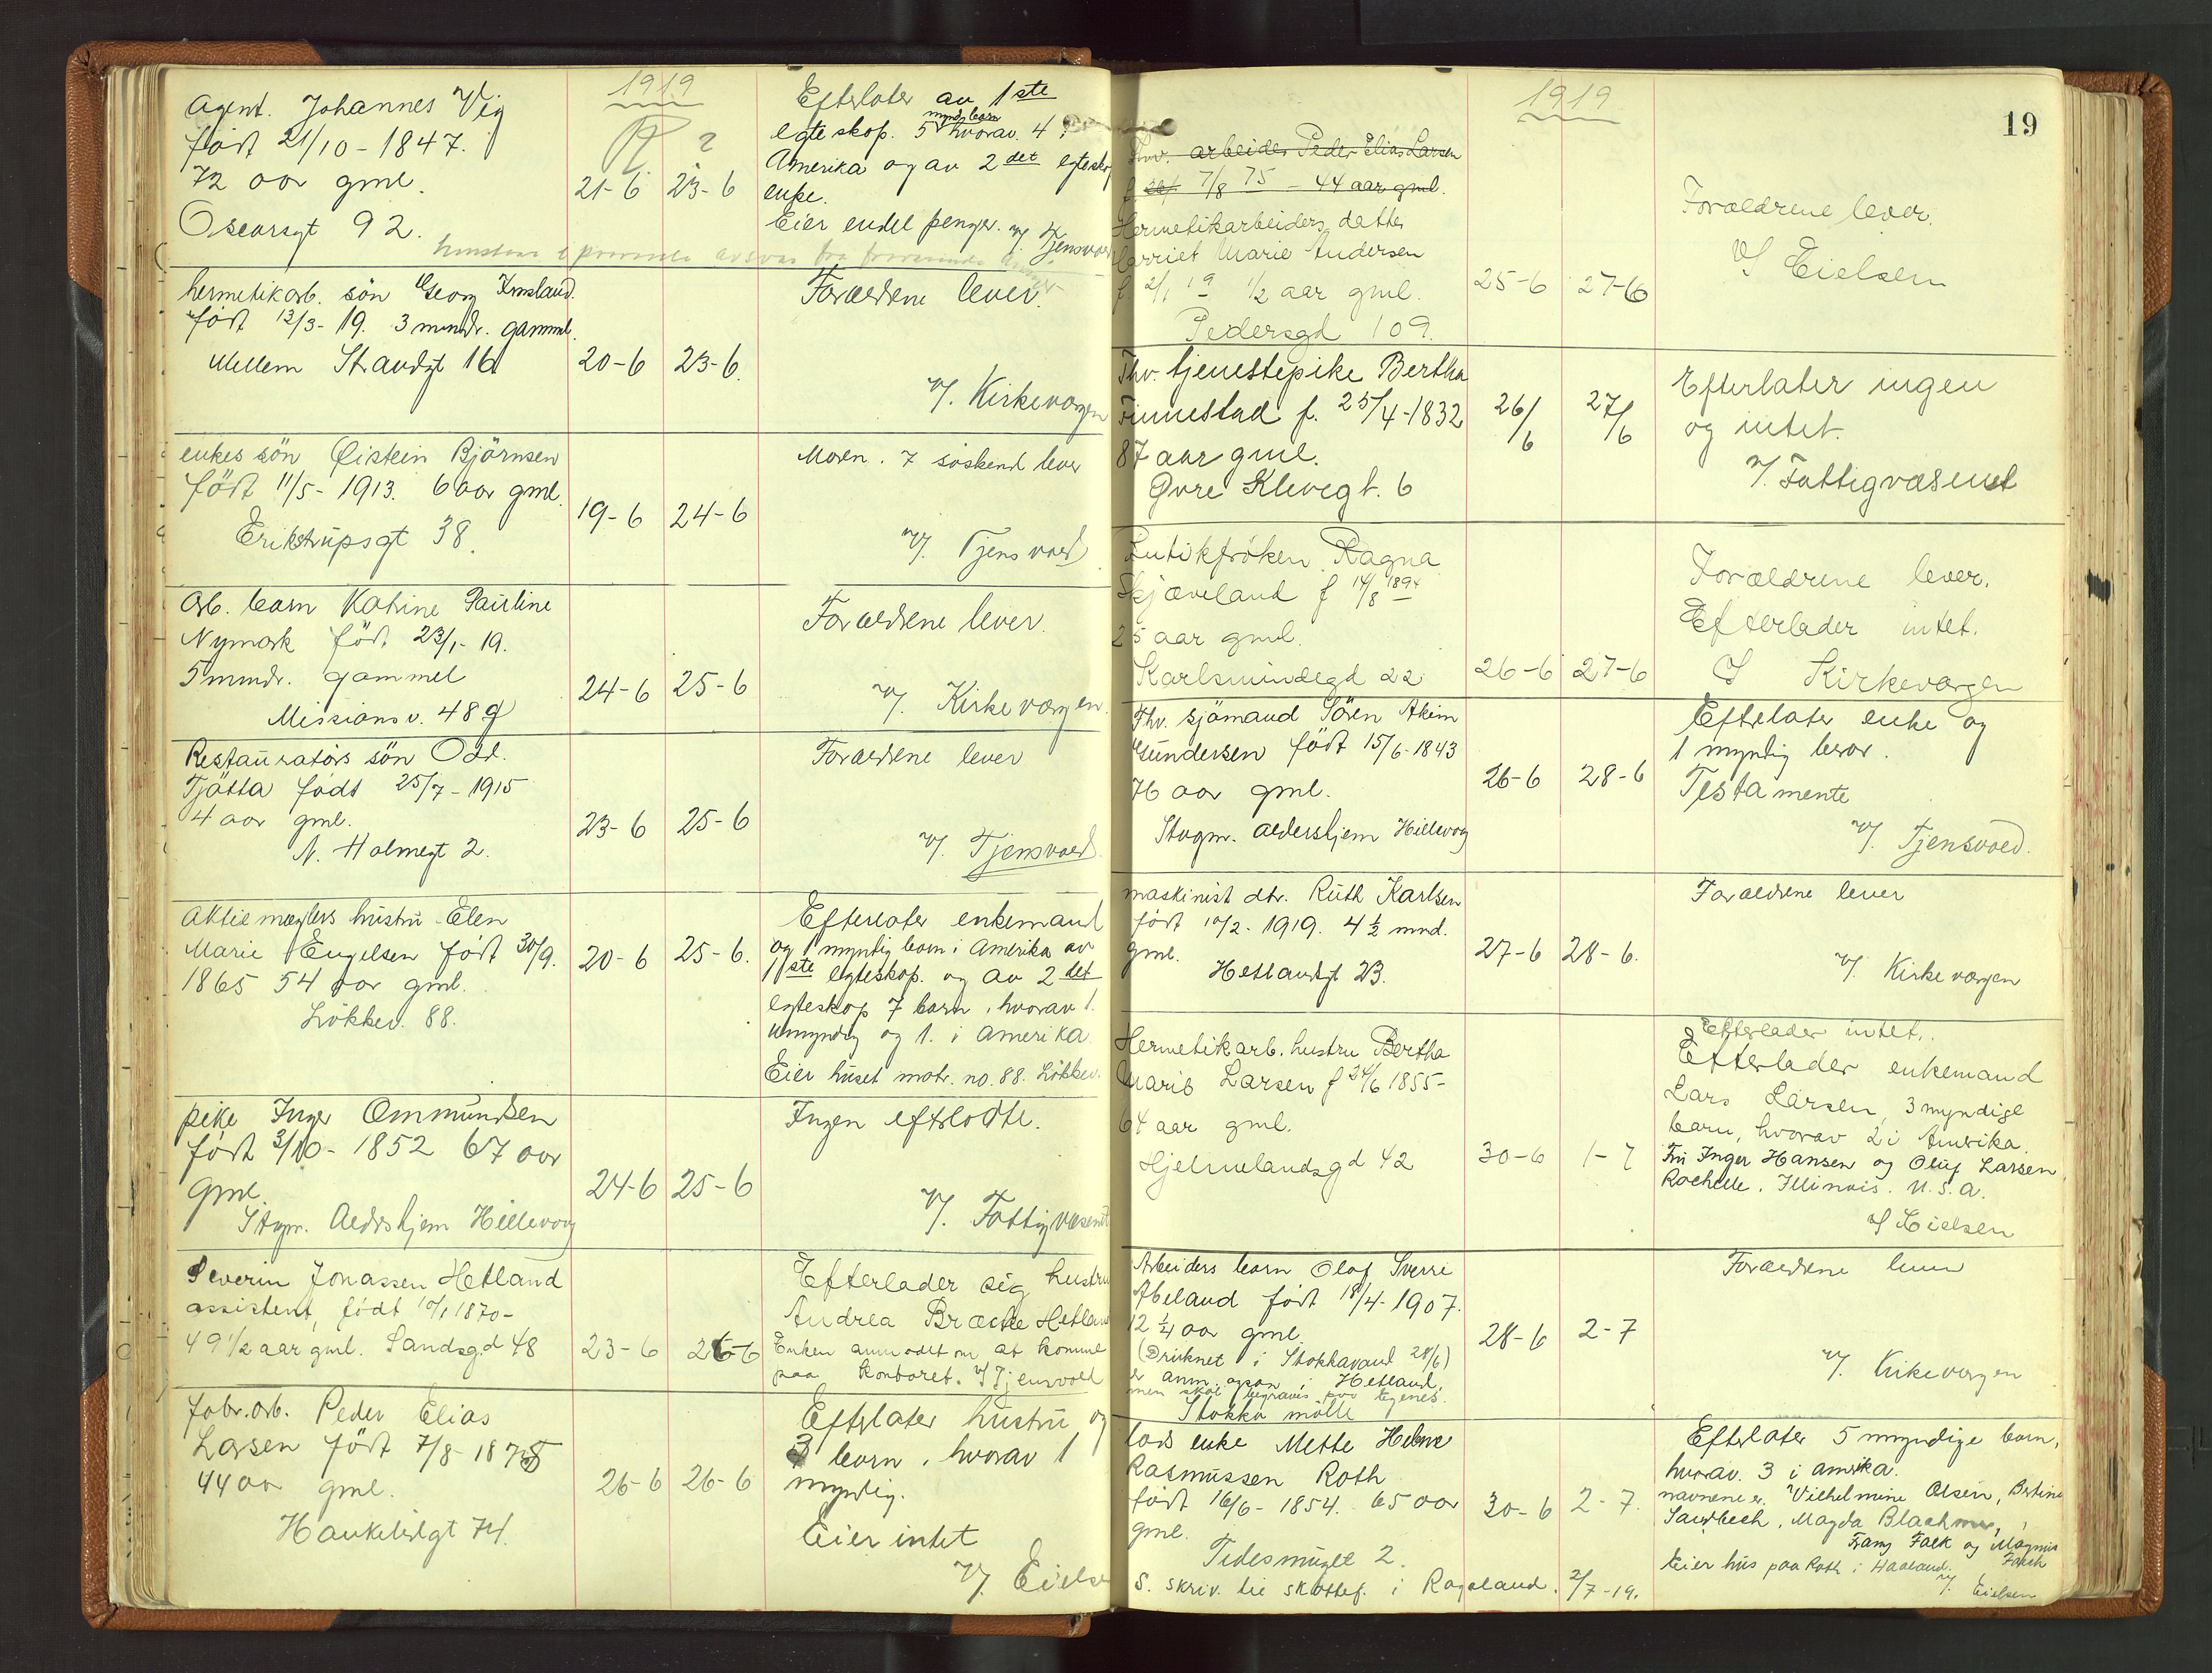 1919
Agent. Johannes Vig
født 21/10 - 1847.
72 aar gml.
Oscarsgt 92.
21-6 23-6
?
Efterlater av 1ste
egteskop. 5 myndi barn hvorav. 4 i
Amerika og av 2det egteskp
enke.
Eier endel penger. v/. Tjensvold
hermetikarb. søn Georg Imsland.
født 13/3- 19. 3 mmdr. gamml.
Mellem Strandgt 16
20-6 23-6.
Forældrene lever.
v/. Kirkevergen
enkes søn Øistein Bjørnsen
født 11/5- 1913. 6 aar gml.
Erikstrupsgt 38.
19-6 24-6
Moren. 7 søskend lever
v/. Tjensvold
Arb. barn Katrine Pauline
Nymark født 23/1- 19.
5 mmdr. gammel
Missionsv. 48 g
24-6 25-6
Forældrene lever.
v/. Kirkevergen.
Restauratørs søn Odd.
Tjøtta født 25/7 - 1915
4 aar gml.
N. Holmegt 2.
23-6 25-6
Forældrene lever
v/. Tjensvold
Aktiemæglers hustru Elen
Marie Engelsen født 30/9.
1865 54 aar gml.
Løkkev. 88.
20-6 25-6.
Efterlater enkemand
og 1 myndig barn i Amerika av
1ste egteskop. og av 2det
egteskop 7 barn, hvorav 1.
umyndig og 1. i Amerika.
Eier huset matr. no. 88. Løkkev.
pike Inger Ommundsen
født 3/10- 1852 67 aar
gml.
Stgm. Aldershjem Hillevog
24-6 25-6
Ingen efterlatte.
v/. Fattigvæsenet
Severin Jonassen Hetland
assistent, født 10/1 1870-
49 1/2 aar gml. Sandsgd 48
23-6 26-6
Efterlader sig hustru
Andrea Bracke Hetland
Enken anmodet om at komme
paa kontoret. v/ Tjensvold
fabr. arb. Peder Elias
Larsen født 7/8- 1875
44 aar gml.
Haukeligt 74.
26-6 26-6
Efterlater hustru og
3 barn, hvorav 1
myndig.
Eier intet
v/. Eielsen
1919
19
Fhv. arbeider Peder Elias Larsen
f 7/8 75 - 44 aar gml.
Hermetikarbeiders datter
Harriet Marie Andersen
f 2/1 19 1/2 aar gml.
Pedersgd 109.
25-6 27-6
Forældrene lever.
v/ Eielsen
Fhv. tjenestepike Bertha
Finnestad f. 25/4-1832
87 aar gml.
Øvre Klevegt. 6
26/6 27/6
Efterlater ingen
og intet.
v/. Fattigvæsenet
Butikfrøken Ragna
Skjæveland f 14/8 1894
25 aar gml.
Karlsmindegd 22
26-6 27-6
Forældrene lever.
Efterlader intet.
v/ Kirkevergen
Fhv. sjømand Søren Akim
Gundersen født 15/6-1843
76 aar gml.
Stvgm. aldershjem Hillevog
26-6 28-6
Efterlater enke og
1 myndig barn.
Testamente
v/. Tjensvold.
maskinist dtr. Ruth Karlsen
født 10/2- 1919. 4 1/2 mnd.
gml.
Hetlandsgt 23.
27-6 28-6.
Forældrene lever
v/. Kirkevergen
Hermetikarb. hustru Bertha
Marie Larsen f 24/6 1855-
64 aar gml.
Hjelmelandsgd 42
30-6 1-7
Efterlader intet.
Efterlader enkemand
Lars Larsen, 3 myndige
barn, hvorav 2 i Amerika.
Fru Inger Hansen og Oluf Larsen,
Rochelle. Illinois. U.S.A.
v/ Eielsen
Arbeiders barn Olaf Sverre
Abeland født 18/4-1907.
12 1/4 aar gml.
(Druknet i Stokkavand 28/6)
er anm. ogsaa i Hetland,
men skal begraves paa Egenes.
Stokka mølle
28-6 2-7
Forældrene lever
v/. Kirkevergen
lods enke Mette Helene
Rasmussen Roth
født 16/6- 1854. 65 aar
gml.
Tidesmugt 2.
S. skriv. til skattef. i Rogaland. 2/7-19.
30-6 2-7.
Efterlater 5 myndige barn,
hvorav. 3 i Amerika.
navnene er. Vilhelmine Olsen, Bertine
Sandbech, Magda
Frany Falk og Magnus
Falch
Eier hus paa Roth i Haaland.
v/. Eielsen